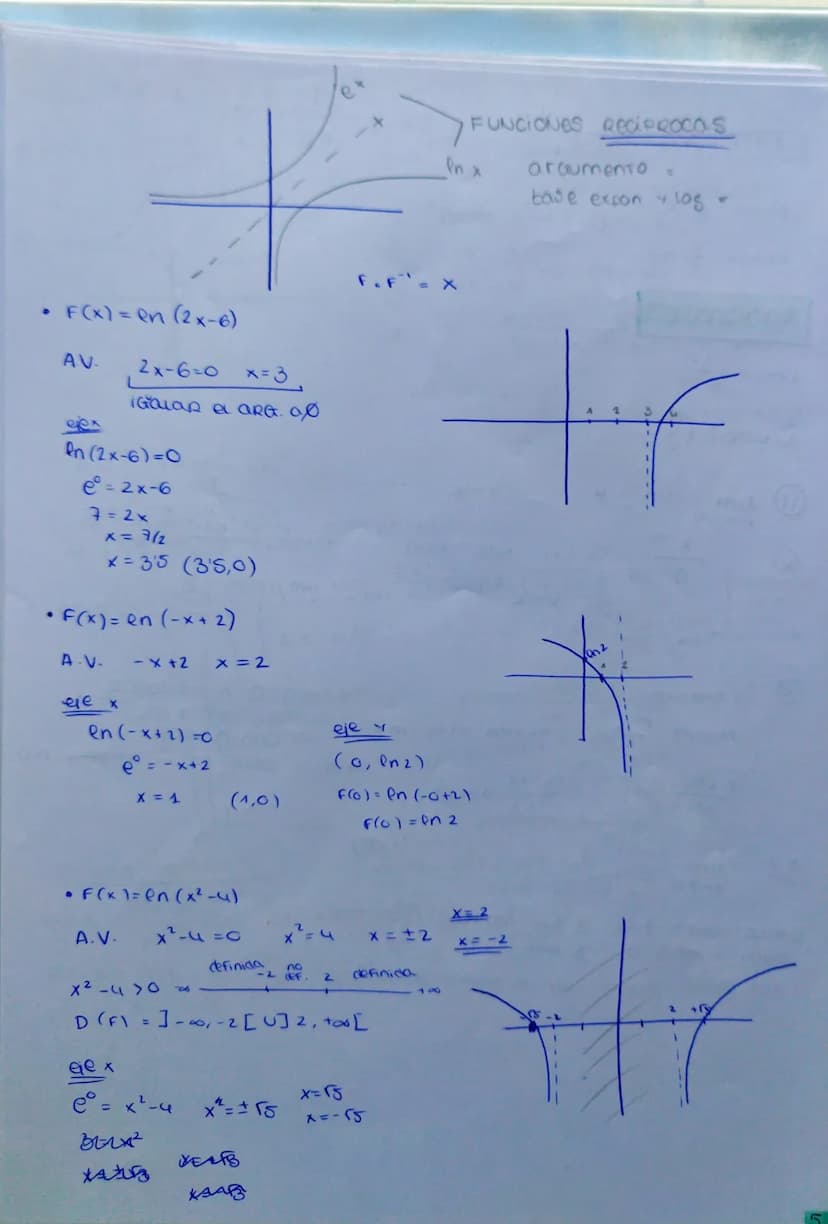 eˣ
x
FUNCIONES RECÍPROCAS
ln x
argumento =
base expon y log =
F∘F⁻¹ = x
• F(x) = ln (2x-6)
A.V. 2x-6=0 x=3
IGUALAR EL ARG. a 0
eje x
ln (2x-6)=0
e⁰ = 2x-6
7 = 2x
x = 7/2
x = 3'5 (3'5,0)
1 2 3 4
• F(x) = ln (-x+2)
A.V. -x+2 x=2
ln 2
1 2
eje x
ln (-x+2) =0
e⁰ = -x+2
x = 1 (1,0)
eje y
(0, ln 2)
F(0) = ln (-0+2)
F(0) = ln 2
• F(x) = ln (x²-4)
A.V. x²-4=0 x²=4 x=±2 x=2
x=-2
definida -2 no def. 2 definida
x²-4>0 -∞ +∞
D(F) = ]-∞,-2[ U ]2,+∞[
-√5 -2 2 +√5
eje x
e⁰ = x²-4 x=±√5 x=√5
x=-√5
5